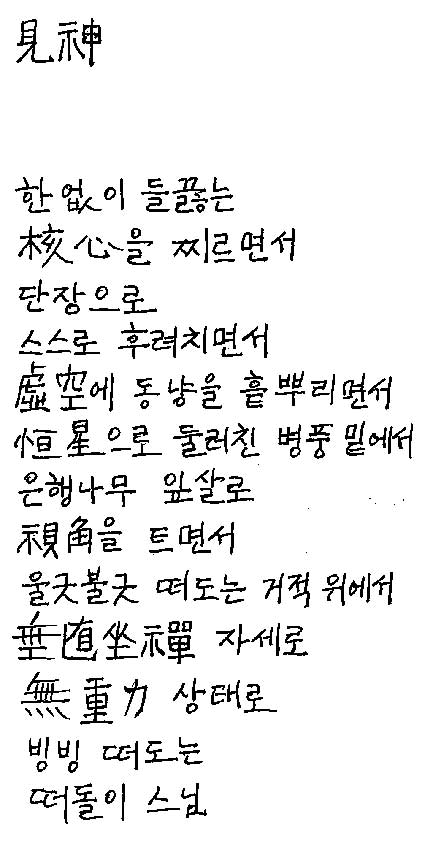 見神
한없이 들끓는
核心을 찌르면서
단장으로
스스로 후려치면서
虛空에 동냥을 흩뿌리면서
恒星으로 둘러친 병풍 밑에서
은행나무 잎살로
視角을 트면서
울긋불긋 떠도는 거적 위에서
垂直坐禪 자세로
無重力 상태로
빙빙 떠도는
떠돌이 스님